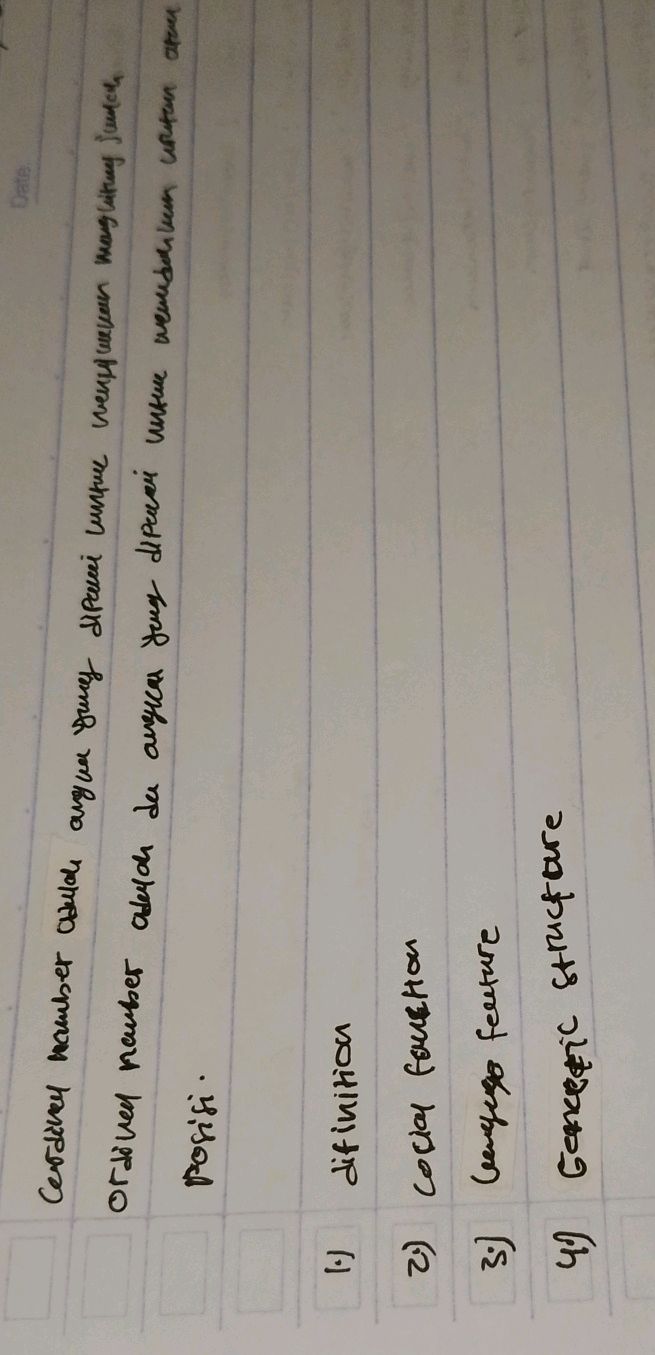 Date:
Cardinal number adalah angka yang dipakai untuk menyatakan menghitung jumlah
Ordinal number adalah da angka yang dipakai untuk menunjukkan urutan atau
posisi.
1.) difinition
2.) Social function
3.) language feature
4.) Generic structure